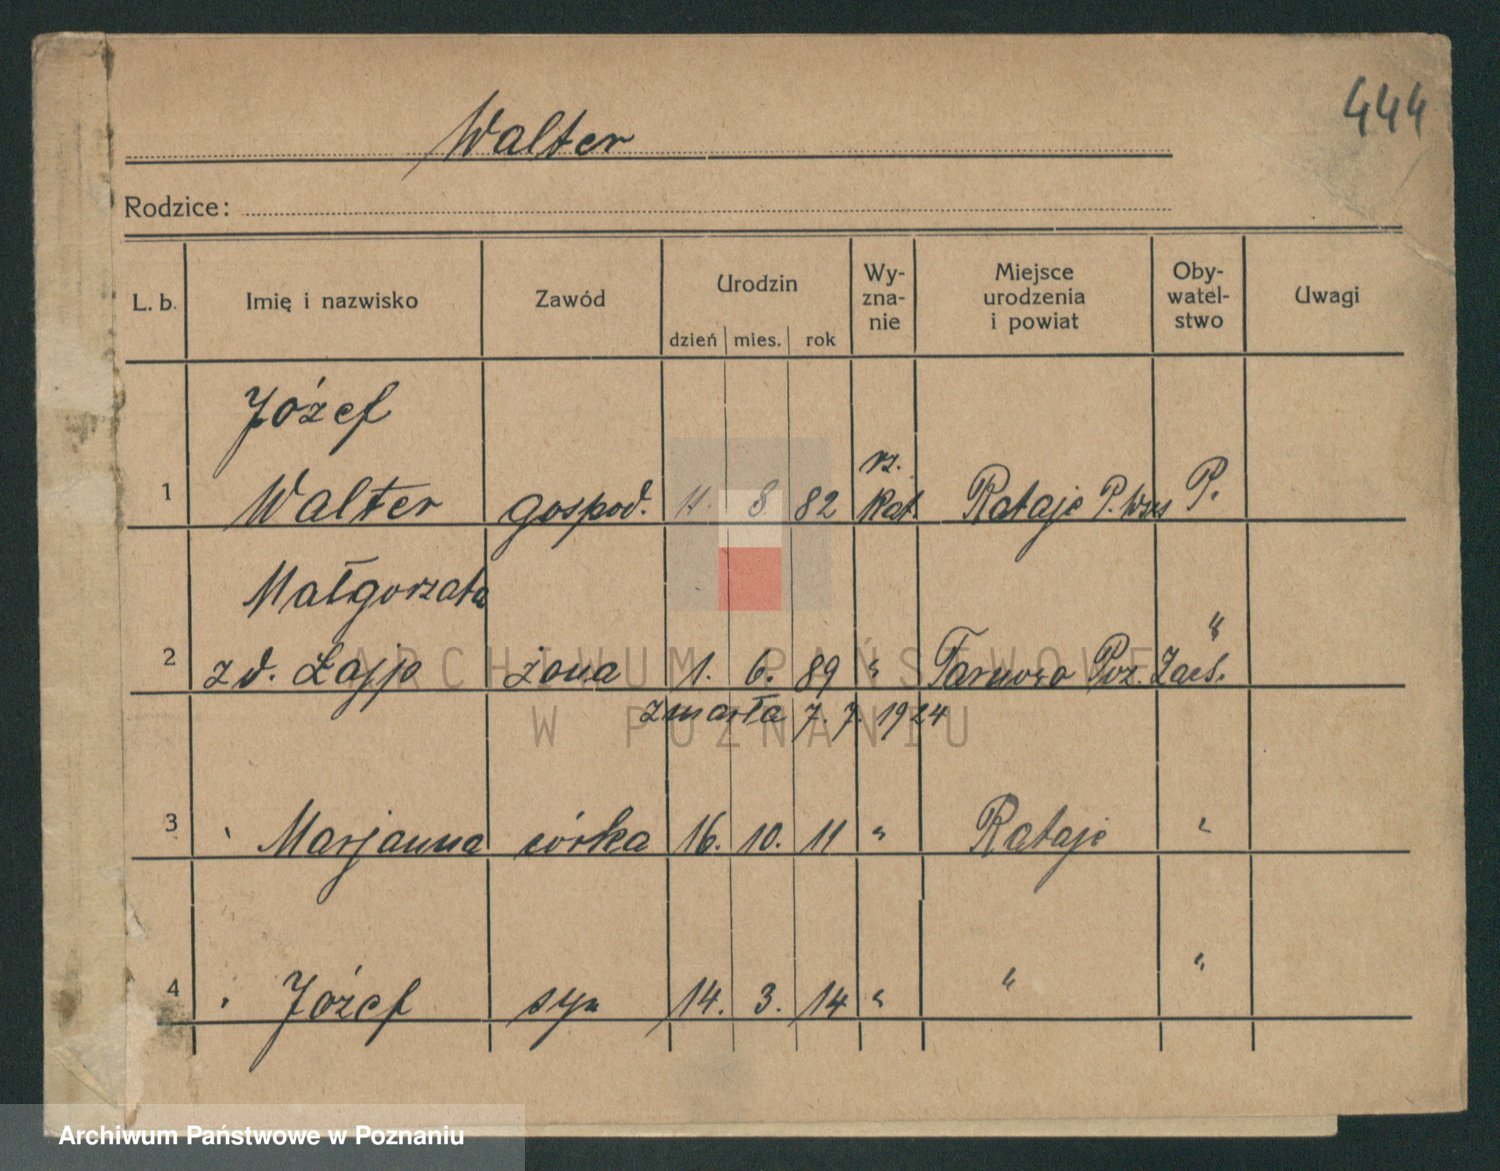 444
Walter
Rodzice:
L. b. Imię i nazwisko Zawód Urodzin dzień mies. rok Wy-zna-nie Miejsce urodzenia i powiat Oby-watel-stwo Uwagi
Józef
1 Walter gospod. 11. 8 82 rz. kat. Rataje P. Wsch P.
Małgorzata
2 z d. Łajp żona 1. 6. 89 " Tarnowo Poz. Zach. "
zmarła 7. 7. 1924
3 Marjanna córka 16. 10. 11 " Rataje "
4 Józef syn 14. 3. 14 " " "
ARCHIWUM PAŃSTWOWE
W POZNANIU
Archiwum Państwowe w Poznaniu